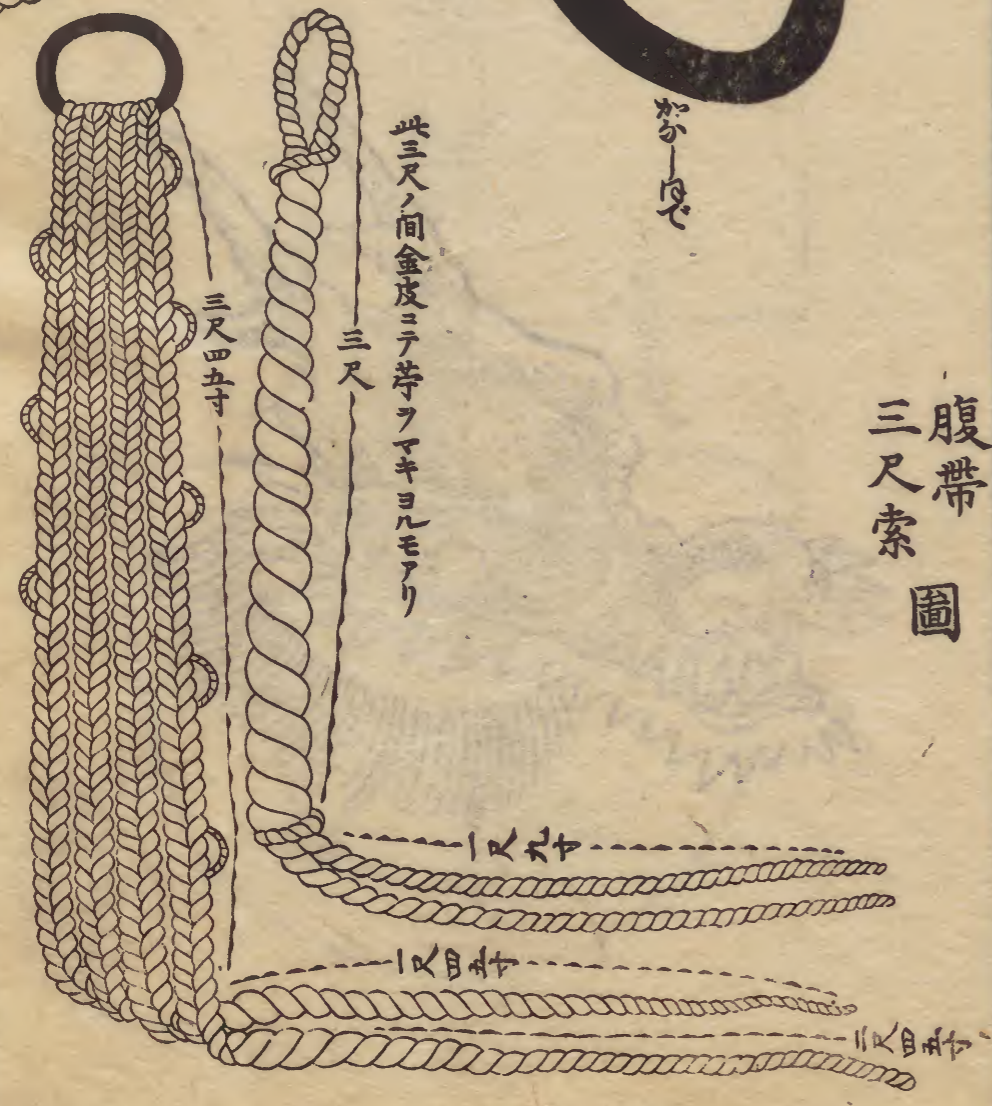 腹帶
三尺索
圖
此三尺ノ間金皮ニテ苧ヲマキヨルモアリ
三尺
三尺四五寸
一尺九寸
一尺四五寸
二尺四五寸